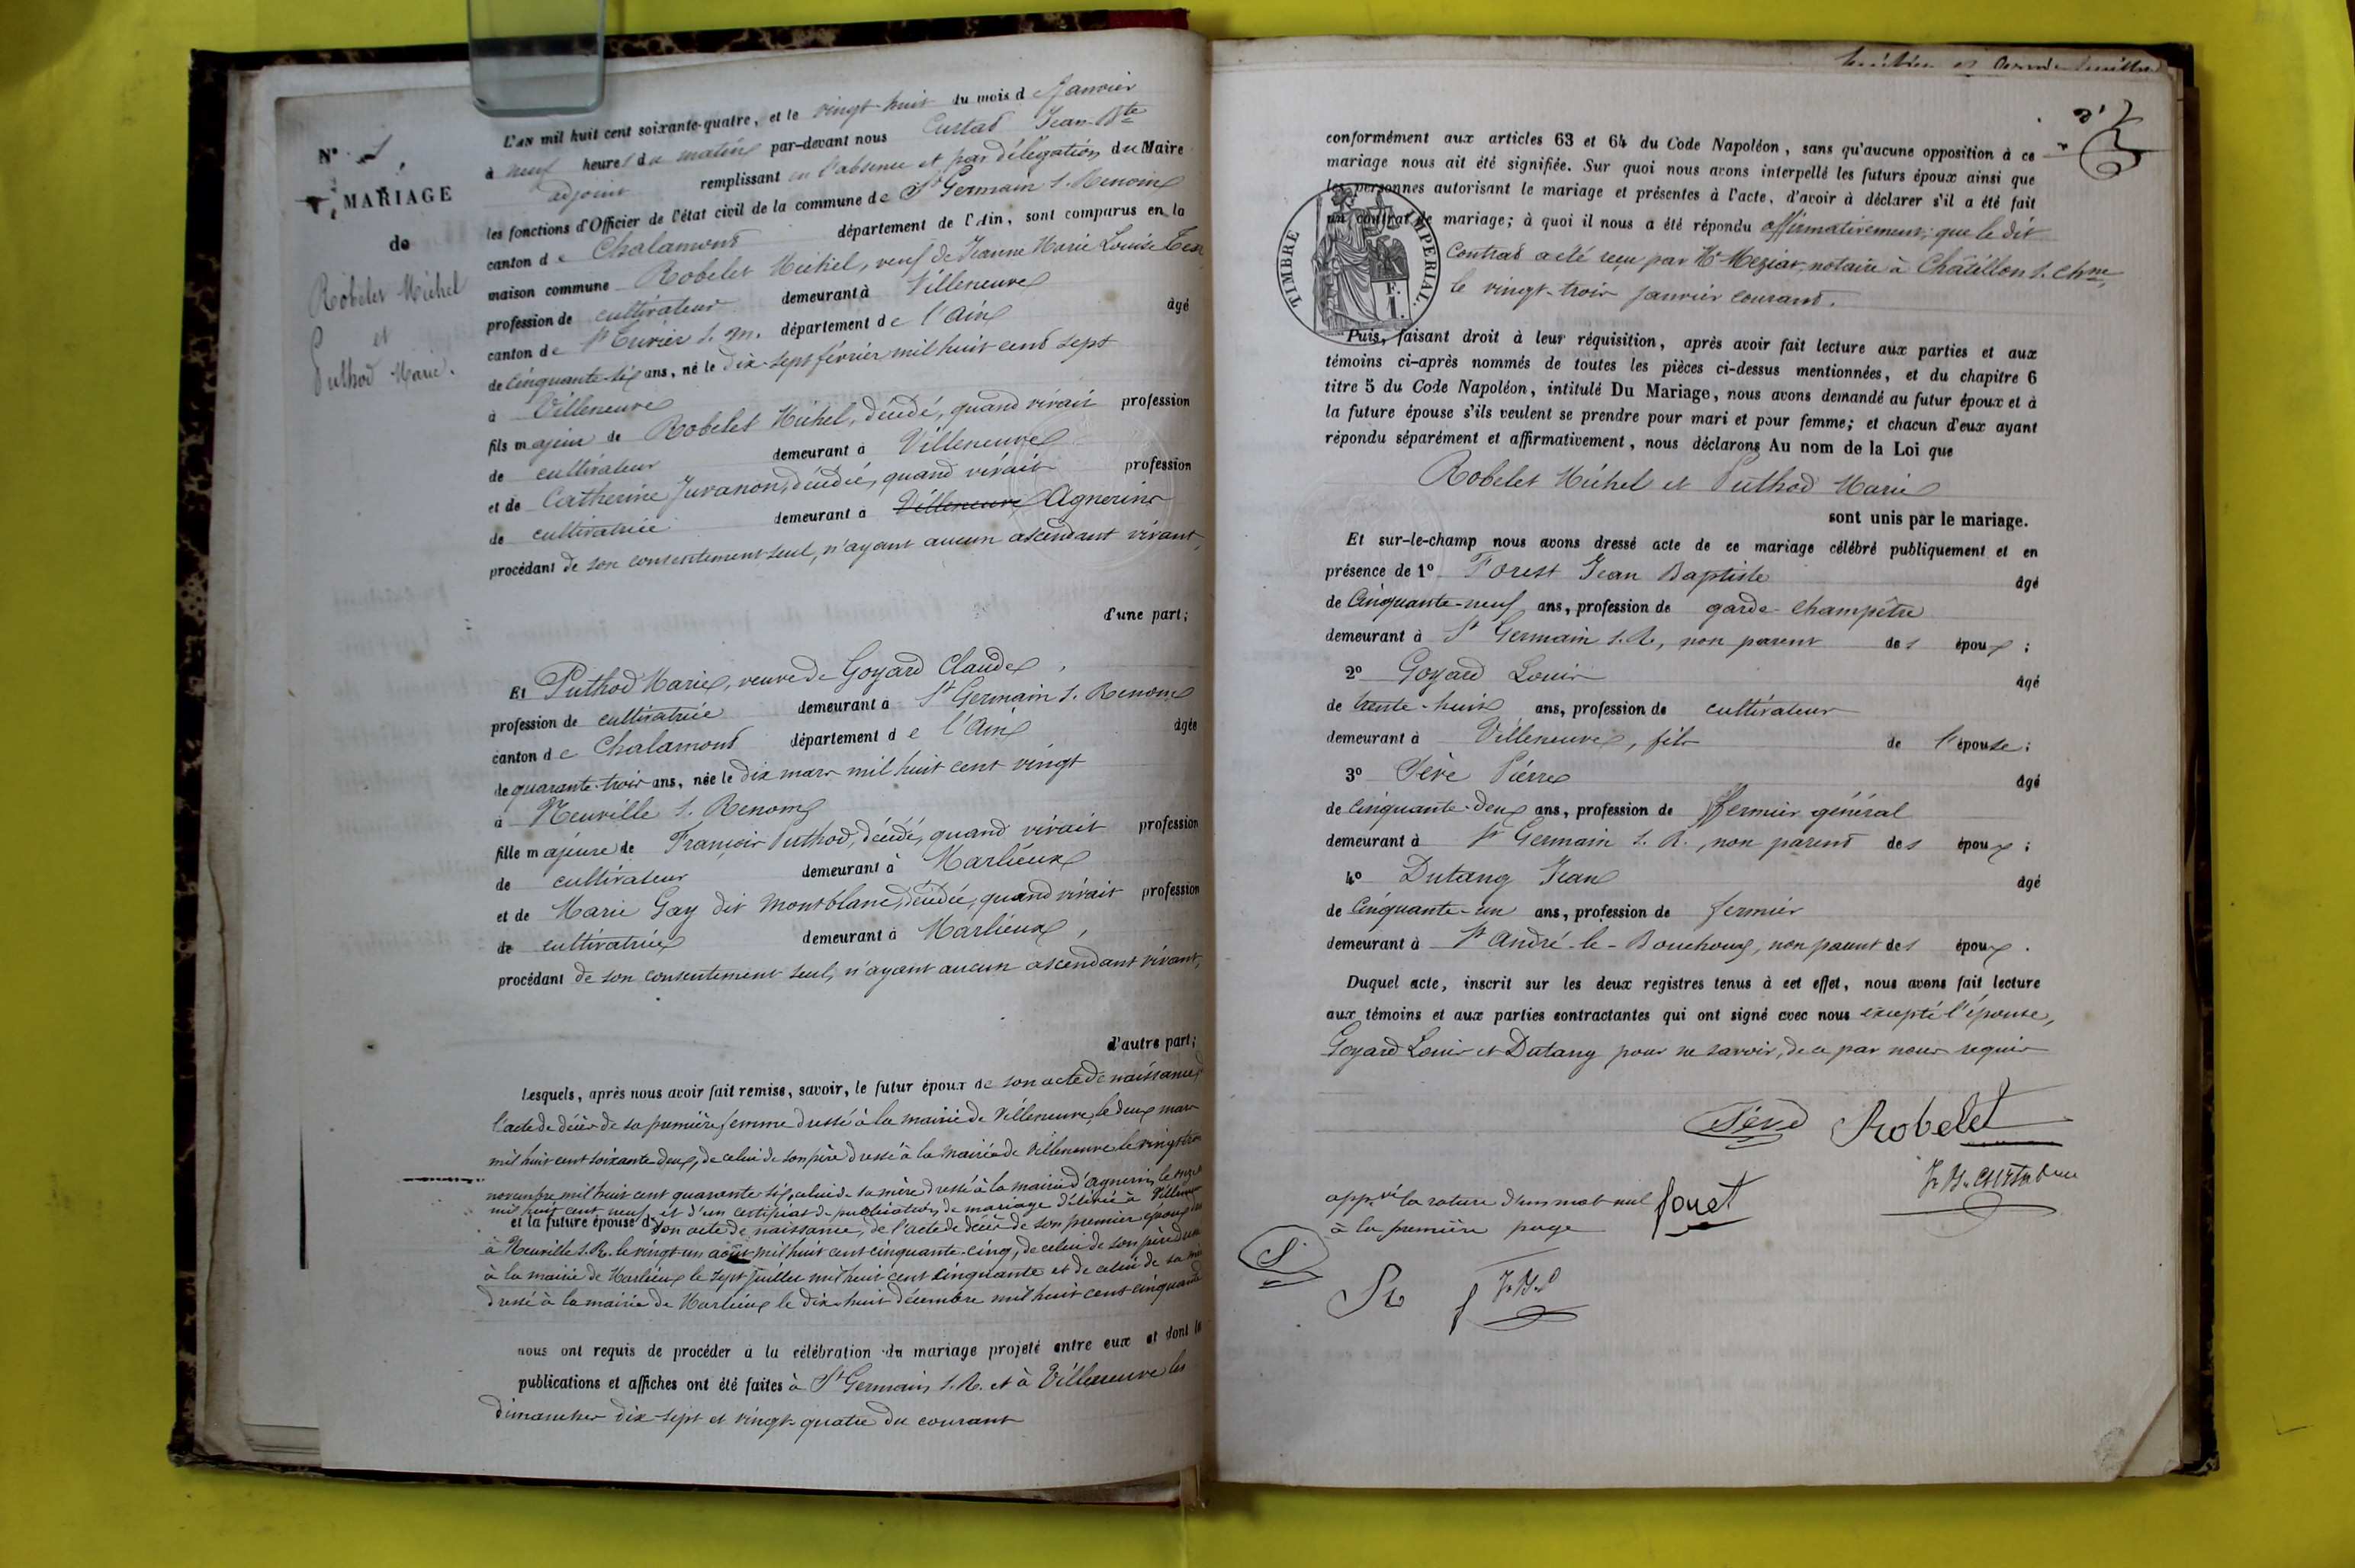 N° 1.
MARIAGE
de
Robelet Michel
et
Puthod Marie.
L'AN mil huit cent soixante-quatre, et le vingt-huit du mois d Janvier
à neuf heures du matin par-devant nous Curtad Jean Bte
adjoint remplissant en l'absence et par délégation du Maire
les fonctions d'Officier de l'état civil de la commune de St Germain s. Renom
canton de Chalamont département de l'Ain, sont comparus en la
maison commune Robelet Michel, veuf de Jeanne Marie Louise
profession de cultivateur demeurant à Villeneuve
canton de St Trivier s. M. département de l'Ain âgé
de cinquante-six ans, né le dix-sept février mil huit cent sept
à Villeneuve
fils majeur de Robelet Michel, décédé, quand vivait profession
de cultivateur demeurant à Villeneuve
et de Catherine Juvanon, décédée, quand vivait profession
de cultivatrice demeurant à Villeneuve Agnerins
procédant de son consentement seul, n'ayant aucun ascendant vivant,
d'une part;
Et Puthod Marie, veuve de Goyard Claude,
profession de cultivatrice demeurant à St Germain s. Renom
canton de Chalamont département de l'Ain âgée
de quarante-trois ans, née le dix mars mil huit cent vingt
à Neuville s. Renom
fille majeure de François Puthod, décédé, quand vivait profession
de cultivateur demeurant à Marlieux
et de Marie Gay dit Montblanc, décédée, quand vivait profession
de cultivatrice demeurant à Marlieux,
procédant de son consentement seul, n'ayant aucun ascendant vivant,
d'autre part;
Lesquels, après nous avoir fait remise, savoir, le futur époux de son acte de naissance,
l'acte de décès de sa première femme dressé à la mairie de Villeneuve, le deux mars
mil huit cent soixante-deux, de celui de son père dressé à la mairie de Villeneuve le vingt-trois
novembre mil huit cent quarante-six, celui de sa mère dressé à la mairie d'Agnerins, le onze
mil huit cent neuf, et d'un certificat de publication de mariage délivré à Villeneuve
et la future épouse d son acte de naissance, de l'acte de décès de son premier époux
à Neuville s. R. le vingt-un août mil huit cent cinquante-cinq, de celui de son père dressé
à la mairie de Marlieux le sept juillet mil huit cent cinquante et de celui de sa mère
dressé à la mairie de Marlieux le dix-huit décembre mil huit cent cinquante
nous ont requis de procéder à la célébration du mariage projeté entre eux et dont les
publications et affiches ont été faites à St Germain s. R. et à Villeneuve les
dimanches dix-sept et vingt-quatre du courant
conformément aux articles 63 et 64 du Code Napoléon, sans qu'aucune opposition à ce
mariage nous ait été signifiée. Sur quoi nous avons interpellé les futurs époux ainsi que
les personnes autorisant le mariage et présentes à l'acte, d'avoir à déclarer s'il a été fait
un contrat de mariage; à quoi il nous a été répondu affirmativement; que le dit
contrat a été reçu par Me Meziat, notaire à Châtillon s. Chne,
le vingt-trois janvier courant.
TIMBRE IMPERIAL.
F.
1.
Puis, faisant droit à leur réquisition, après avoir fait lecture aux parties et aux
témoins ci-après nommés de toutes les pièces ci-dessus mentionnées, et du chapitre 6
titre 5 du Code Napoléon, intitulé Du Mariage, nous avons demandé au futur époux et à
la future épouse s'ils veulent se prendre pour mari et pour femme; et chacun d'eux ayant
répondu séparément et affirmativement, nous déclarons Au nom de la Loi que
Robelet Michel et Puthod Marie
sont unis par le mariage.
Et sur-le-champ nous avons dressé acte de ce mariage célébré publiquement et en
présence de 1° Forest Jean Baptiste âgé
de cinquante-neuf ans, profession de garde-champêtre
demeurant à St Germain s. R., non parent des époux;
2° Goyard Louis âgé
de trente-huit ans, profession de cultivateur
demeurant à Villeneuve, fils de l'épouse;
3° Sève Pierre âgé
de cinquante-deux ans, profession de fermier général
demeurant à St Germain s. R., non parent des époux;
4° Dutang Jean âgé
de cinquante-un ans, profession de fermier
demeurant à St André-le-Bouchoux, non parent des époux.
Duquel acte, inscrit sur les deux registres tenus à cet effet, nous avons fait lecture
aux témoins et aux parties contractantes qui ont signé avec nous excepté l'épouse,
Goyard Louis et Dutang pour ne savoir, de ce par nous requis
Sève Robelet
appvé la rature d'un mot nul foret
à la première page